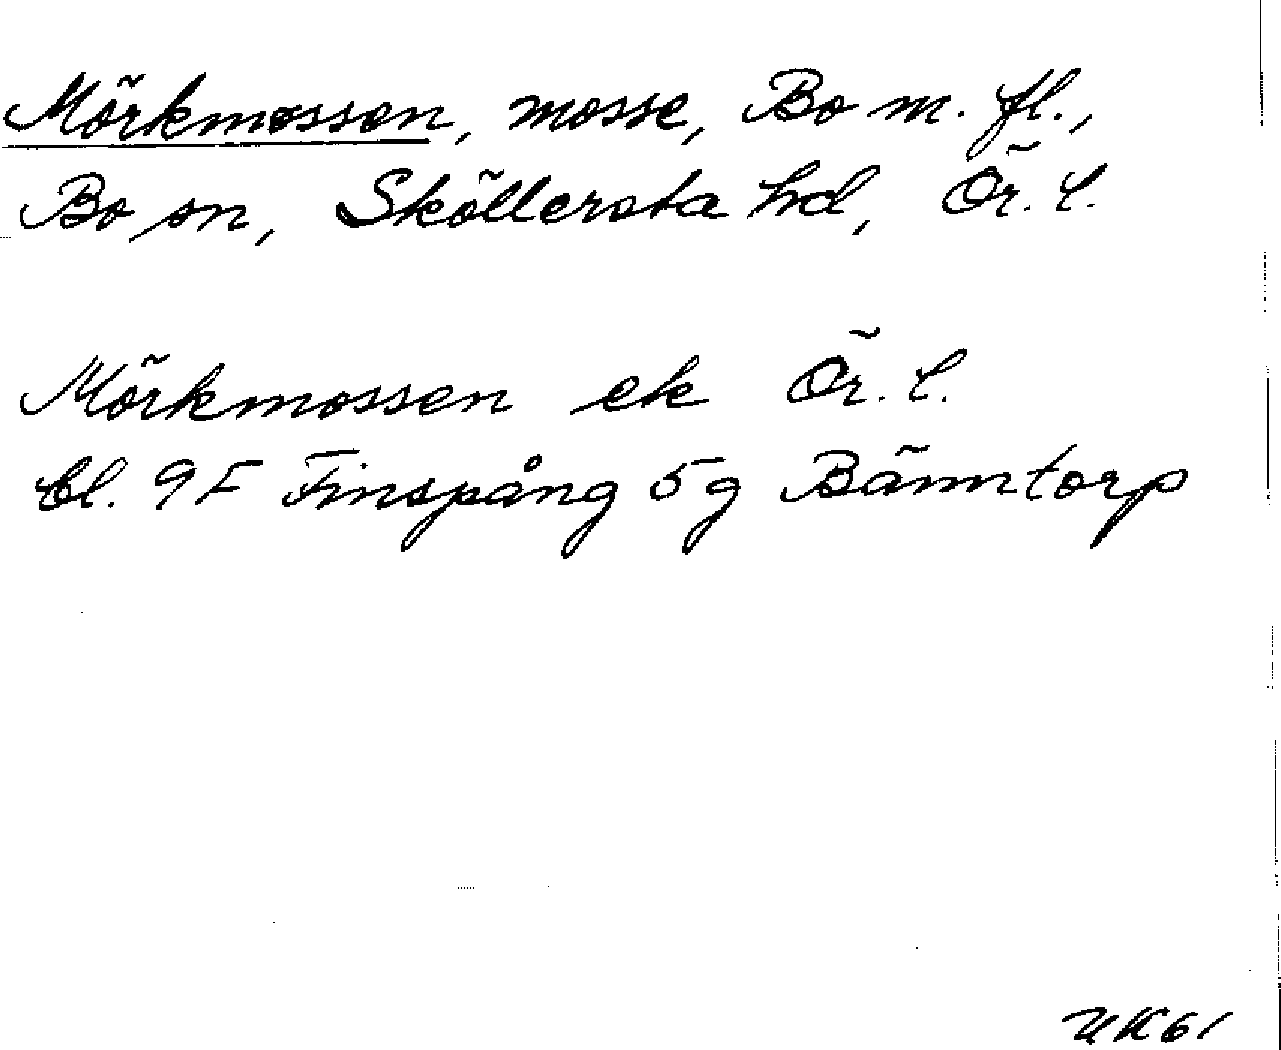 Mörkmossen, mosse, Bo m. fl.,
Bo sn, Sköllersta hd, Ör. l.
Mörkmossen ek Ör. l.
bl. 9F Finspång 5g Bänntorp
UK61